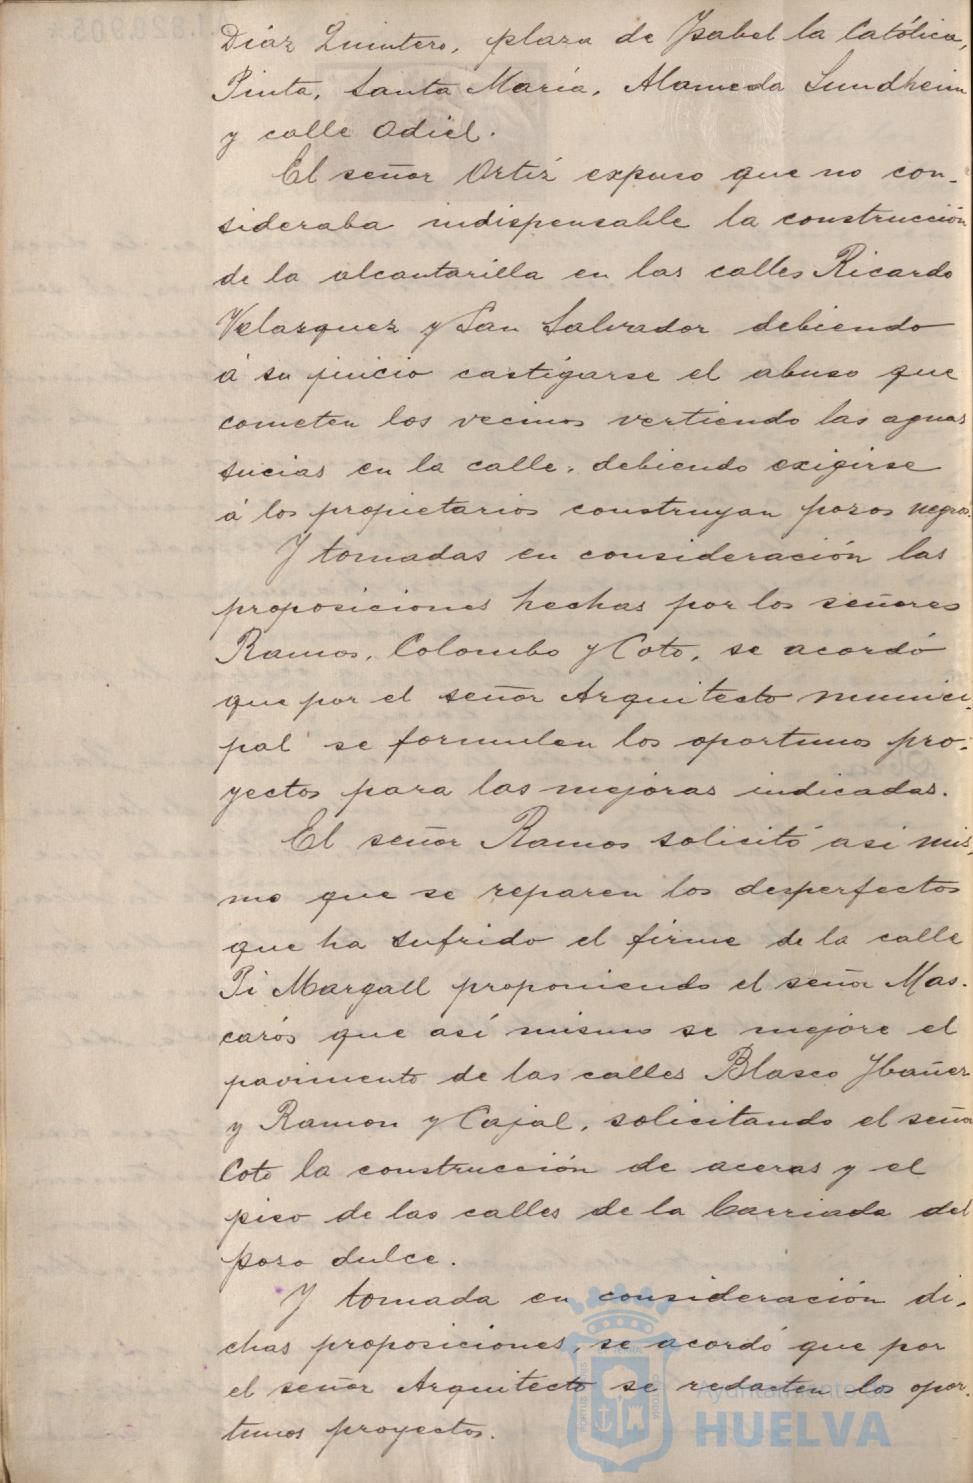 Diaz Quintero, plaza de Ysabel la Católica,
Pinta, Santa María, Alameda Sundheim
y calle Odiel.
El señor Ortiz expuso que no con-
sideraba indispensable la construcción
de la alcantarilla en las calles Ricardo
Velazquez y San Salvador debiendo
á su juicio castigarse el abuso que
cometen los vecinos vertiendo las aguas
sucias en la calle, debiendo exigirse
á los propietarios construyan pozos negros.
Y tomadas en consideración las
proposiciones hechas por los señores
Ramos, Colombo y Coto, se acordó
que por el señor Arquitecto munici-
pal se formulen los oportunos pro-
yectos para las mejoras indicadas.
El señor Ramos solicitó asi mis-
mo que se reparen los desperfectos
que ha sufrido el firme de la calle
Pi Margall proponiendo el señor Mas-
carós que así mismo se mejore el
pavimento de las calles Blasco Ybañez
y Ramon y Cajal, solicitando el señor
Coto la construcción de aceras y el
piso de las calles de la barriada del
pozo dulce.
Y tomada en consideración di-
chas proposiciones, se acordó que por
el señor Arquitecto se redacten los opor-
tunos proyectos.
Ayuntamiento de
HUELVA